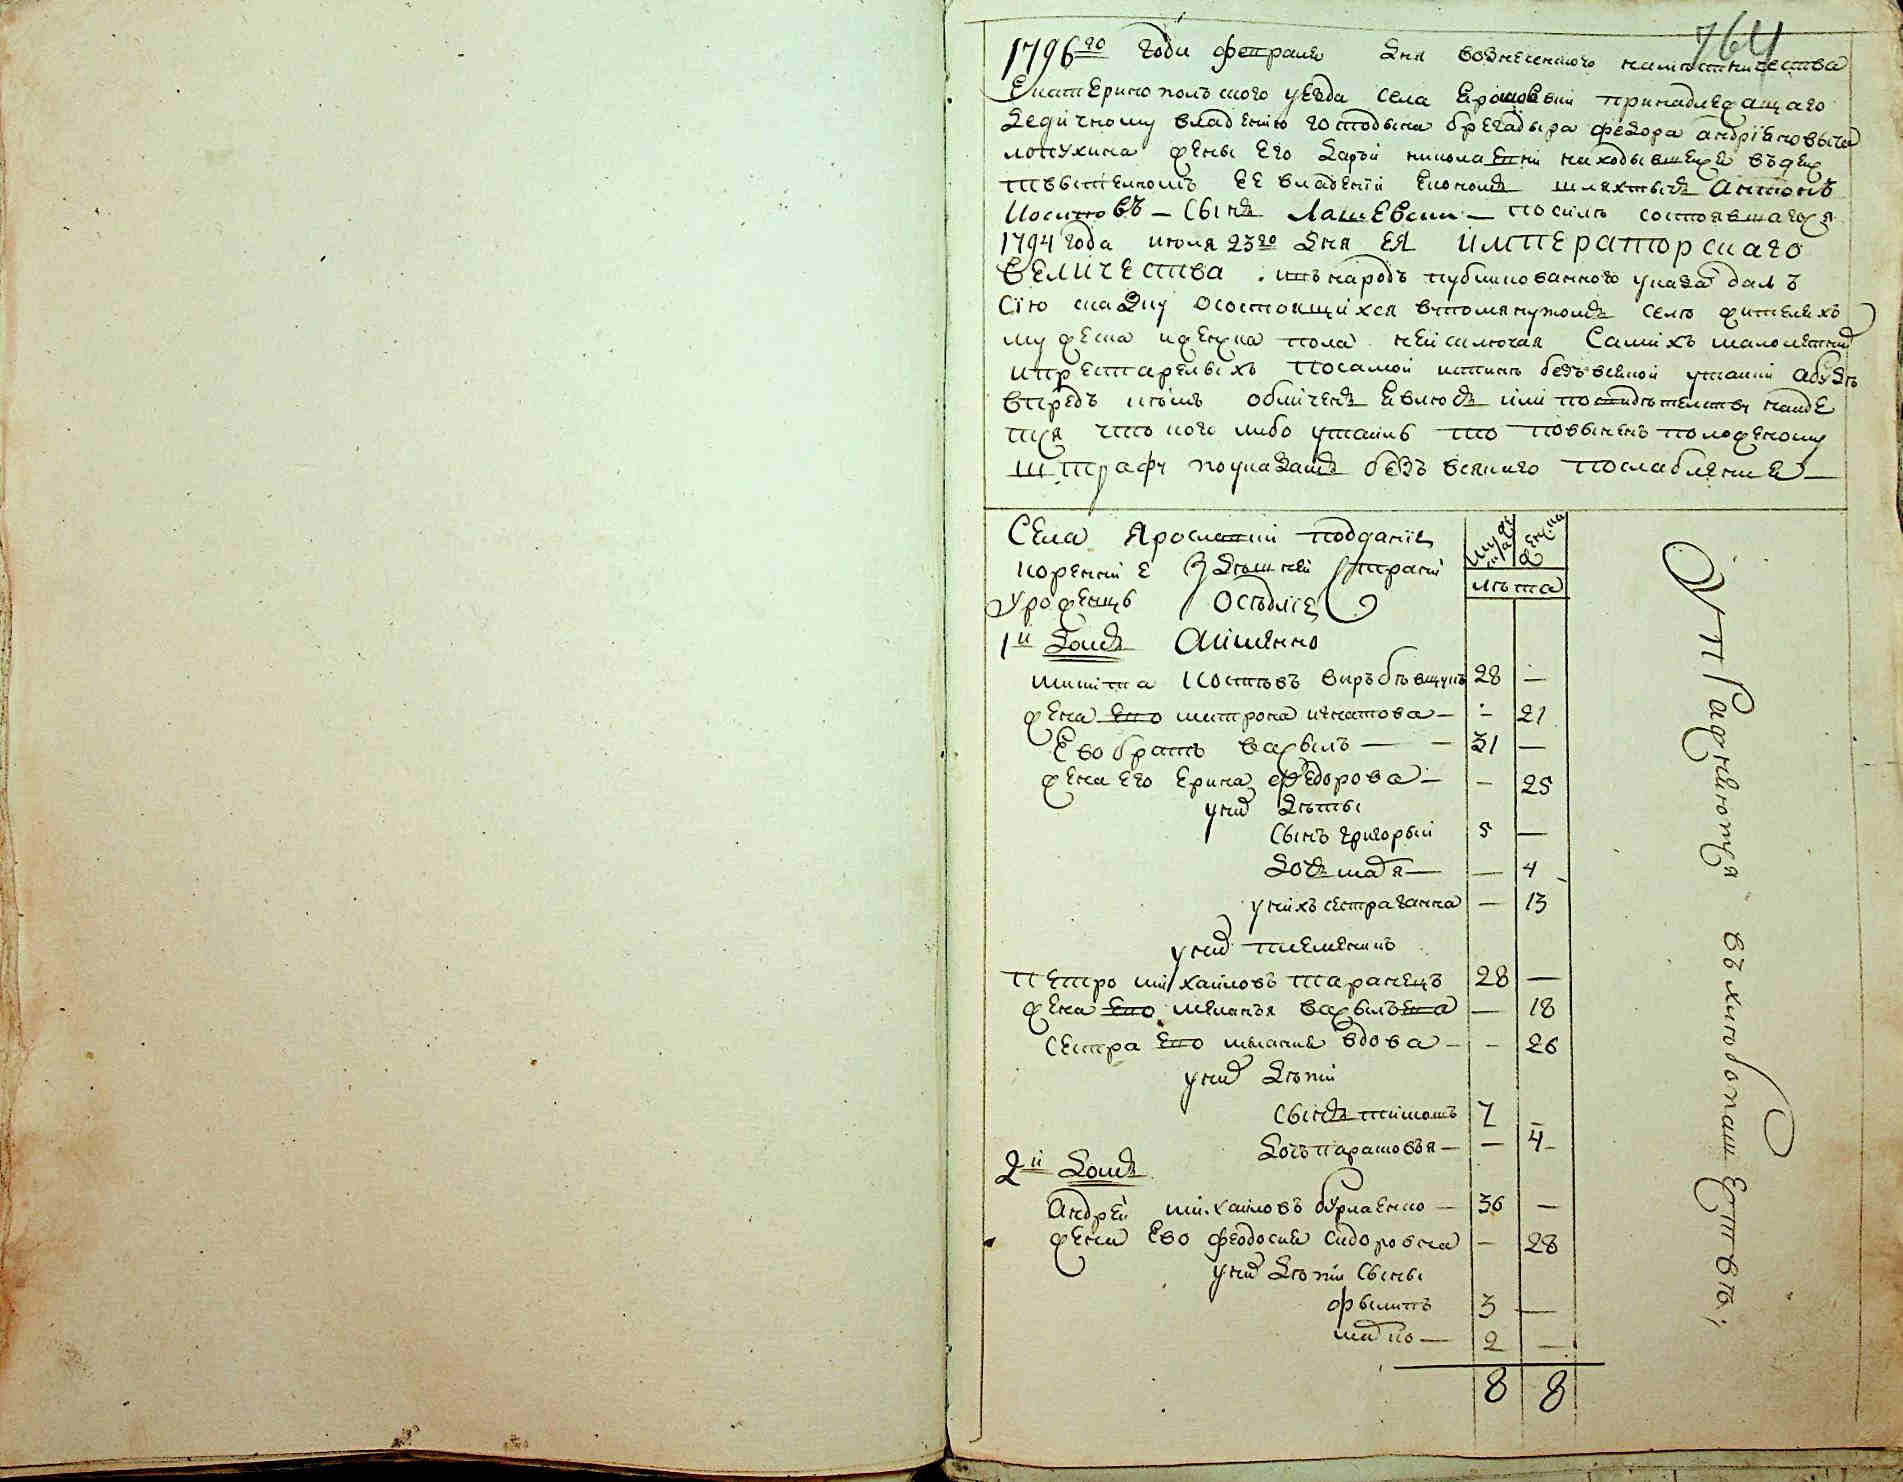 764
1796го года февраля дня вознесенского наместничества
Екатеринопольского уезда села Ерошовки принадлежащаго
дедичному владению господина брегадыра федора андрїановыча
лопухина жены его дарьи николаевни находывшейся въ
ее владении економъ шляхтычъ Антонъ
Иосиповъ – сынъ Лашевски – по силе состоявшагося
1794 года июля 23го дня ЕЯ ИМПЕРАТОРСКАГО
ВЕЛИЧЕСТВА въ народъ публикованного указа далъ
сїю сказку о состоящихся в помянутомъ селе жителяхъ
мужеска и женска пола не исключая самихъ малолетних
и престарелыхъ по самой истине безъ всякой утайки а буде
впредъ кемъ обличенъ явлюсь или по свидетельству найде
тся что кого либо утаилъ то повиненъ положеному
штрафу по указамъ безъ всякого послабления –
Села Ярославки подданїе
коренние здешней страни
Уроженцы Оседлїе
муже
ска
женска
лета
1й домъ Аїменно
микита Костевъ 28 —
жена ево матрона игнатова – – 21
Ево братъ васылъ — – 31 —
жена его Ерина федорова – – 25
у них деты
сынъ григорый 5 —
дочь мадя — — 4
у нихъ сестра ганна — 13
у них племенникъ
Петро михайловъ таранецъ 28 —
жена ево меланья васылъева — 18
Сестра ево мелания вдова – – 26
у них дети
сынъ тимошъ 7 –
дочъ парасковья – – 4
2й домъ
Андрей михайловъ бурлаенко – 36 –
жена Ево феодосия сидоровна – 28
у них дети сыны
фылипъ 3 —
марко – 2 —
8 8
Упражняются въ хлебопашестве;